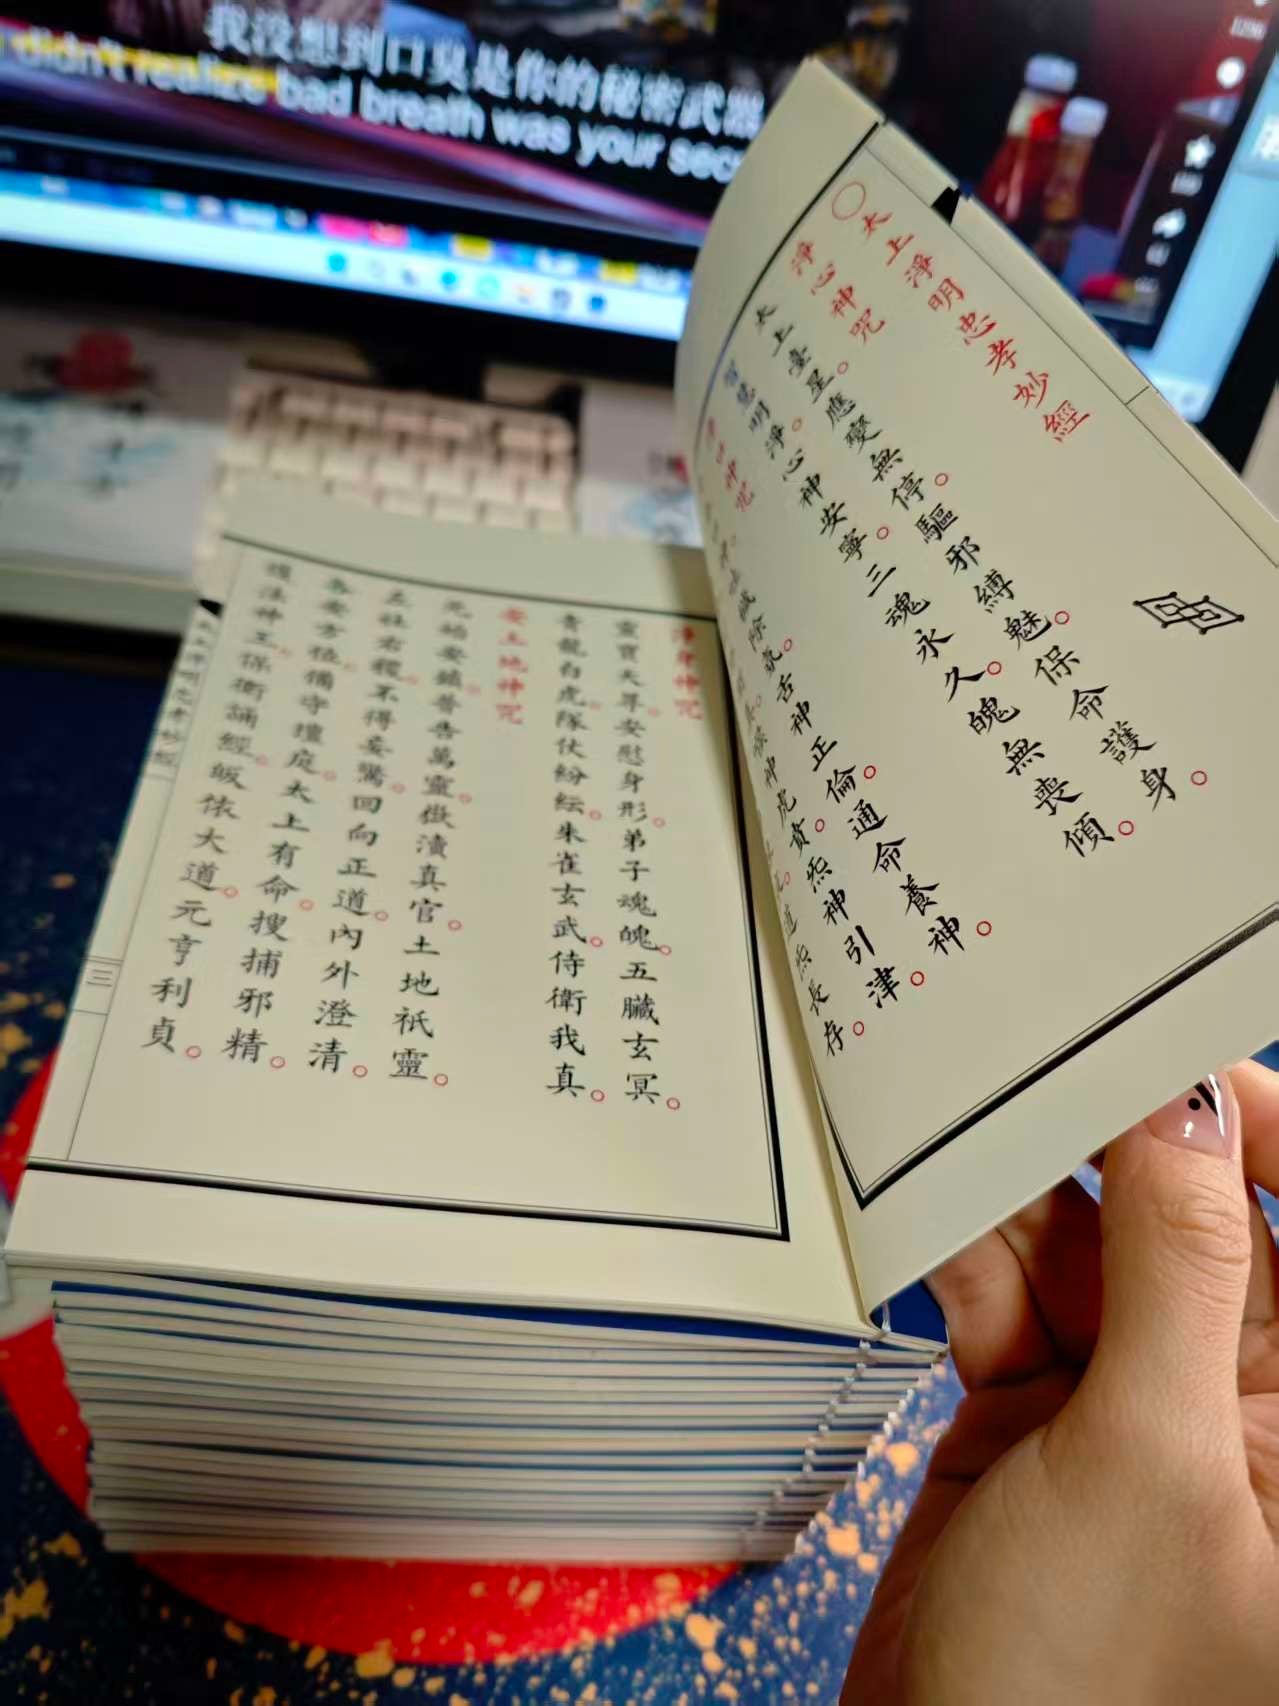 我没想到口臭是你的秘密武器
didn't realize bad breath was your secr
太上淨明忠孝妙經
淨心神咒
太上臺星。應變無停。驅邪縛魅。保命護身。
智慧明淨。心神安寧。三魂永久。魄無喪傾。
淨口神咒
神。除氛。舌神正倫。通命養神。
神虎賁。炁神引津。
道炁長存。
淨身神咒
靈寶天尊。安慰身形。弟子魂魄。五臟玄冥。
青龍白虎。隊仗紛紜。朱雀玄武。侍衛我真。
安土地神咒
元始安鎮。普告萬靈。嶽瀆真官。土地祇靈。
左社右稷。不得妄驚。回向正道。內外澄清。
各安方位。備守壇庭。太上有命。搜捕邪精。
護法神王。保衛誦經。皈依大道。元亨利貞。
太上淨明忠孝妙經
三